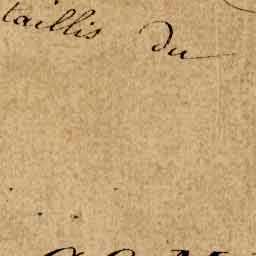 taillis du